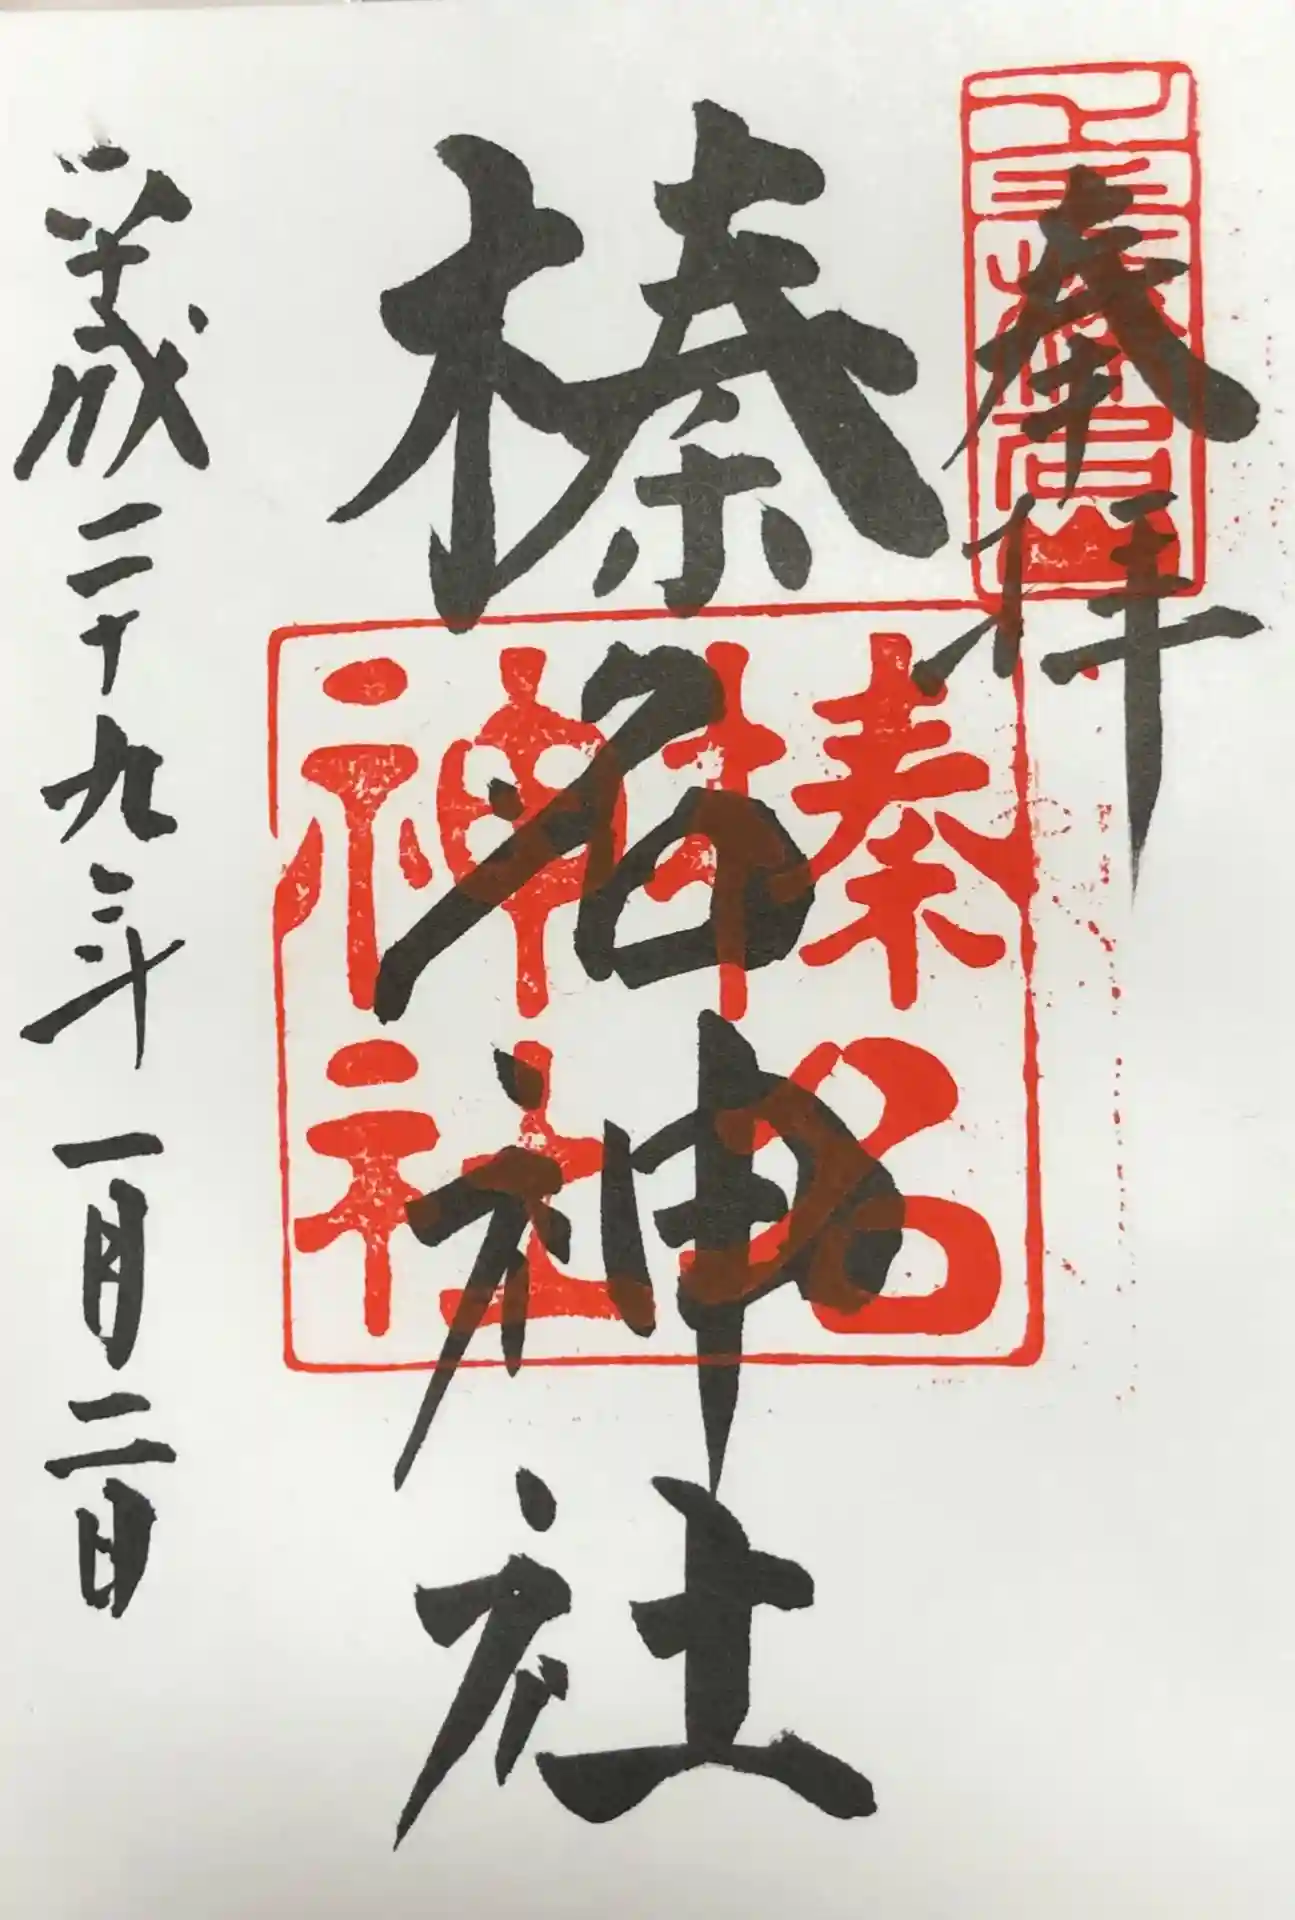 奉拝
上毛榛名山
榛名神社
榛名
神社
平成二十九年一月二日